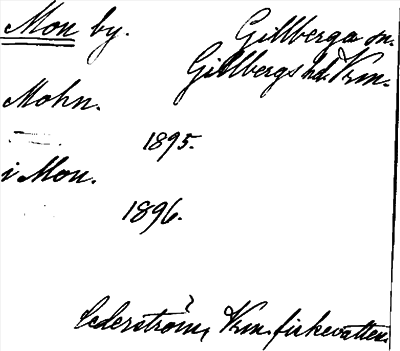 Mon by. Gillberga sn.
Gillbergs hd. Vrm.
Mohn.
1895.
i Mon.
1896.
Cederström, Vrm. fiskevatten.